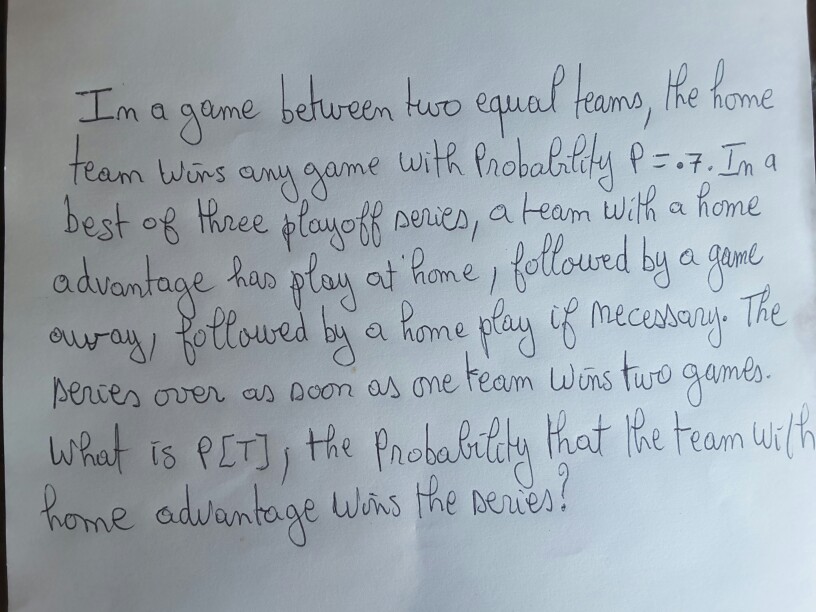 In a game between two equal teams, the home
team wins any game with Probability P = .7. In a
best of three playoff series, a team with a home
advantage has play at home, followed by a game
away, followed by a home play if necessary. The
series over as soon as one team wins two games.
What is P[T], the Probability that the team with
home advantage wins the series?